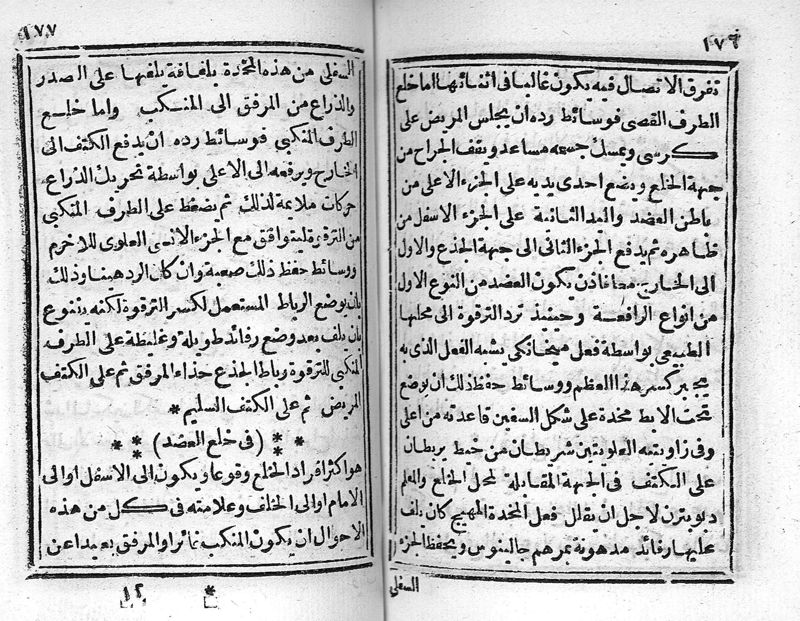 ١٧٦
تفرق الاتصال فيه يكون غالبا فى اثنائها اما خلع
الطرف القصى فوسائط رده ان يجلس المريض على
كرسى ويمسك جسمه مساعد ويقف الجراح من
جهة الخلع ويضع احدى يديه على الجزء الاعلى من
باطن العضد واليد الثانية على الجزء الاسفل من
ظاهره ثم يدفع الجزء الثانى الى جهة الجذع والاول
الى الخارج معا فاذن يكون العضد من النوع الاول
من انواع الرافعة وحينئذ ترد الترقوة الى محلها
الطبيعى بواسطة فعل ميخانيكى يشبه الفعل الذى به
يجبر كسر هذا العظم ووسائط حفظ ذلك ان يوضع
تحت الابط مخدة على شكل السفين قاعدته من اعلى
وفى زاويتيه العلويتين شريطان من خيط يربطان
على الكتف فى الجهة المقابلة لمحل الخلع والمعلم
دبوبترن لاجل ان يقلل فعل المخدة المهيج كان يلف
عليها رفائد مدهونة بمرهم جالينوس ويحفظ الجزء
السفلى
١٧٧
السفلى من هذه المخدة بلفافة يلفها على الصدر
والذراع من المرفق الى المنكب واما خلع
الطرف المنكبى فوسائط رده ان يدفع الكتف الى
الخارج ويرفعه الى الاعلى بواسطة تحريك الذراع
حركات ملائمة لذلك ثم يضغط على الطرف المنكبى
من الترقوة ليتوافق مع الجزء الانسى العلوى للاخرم
ووسائط حفظ ذلك صعبة وان كان الرد هينا وذلك
بان يوضع الرباط المستعمل لكسر الترقوة لكنه يتنوع
بان يلف بعد وضع رفائد طويلة وغليظة على الطرف
المنكبى للترقوة رباط الجذع حذاء المرفق ثم على الكتف
المريض ثم على الكتف السليم *
(فى خلع العضد)
هو اكثر افراد الخلع وقوعا ويكون الى الاسفل او الى
الامام او الى الخلف وعلامته فى كل من هذه
الاحوال ان يكون المنكب ناتئا والمرفق بعيدا عن
١٢